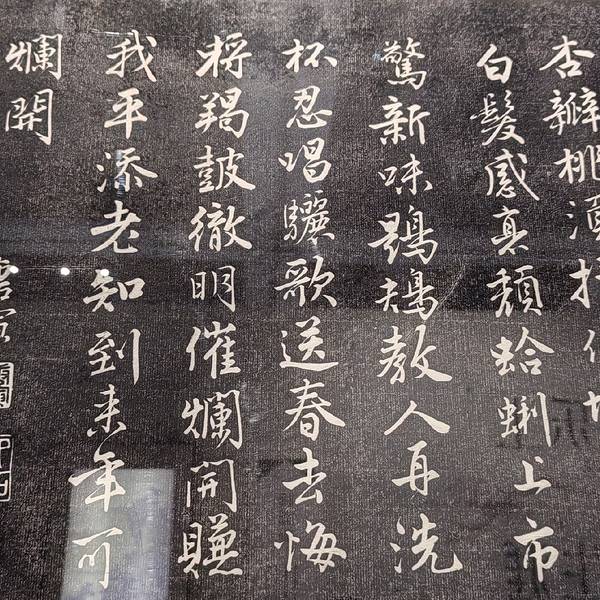 杏瓣桃
白髮感真頽蛤蜊上市
驚新味鶗鴂教人再洗
杯忍唱驪歌送春去悔
將羯鼓徹明催爛開賺
我平添老知到来年可
爛開